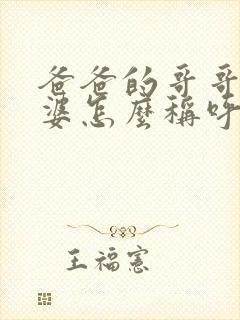 爸爸的哥哥
婆怎麼稱呼
王福憲